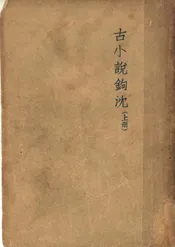 古小說鉤沈（上冊）